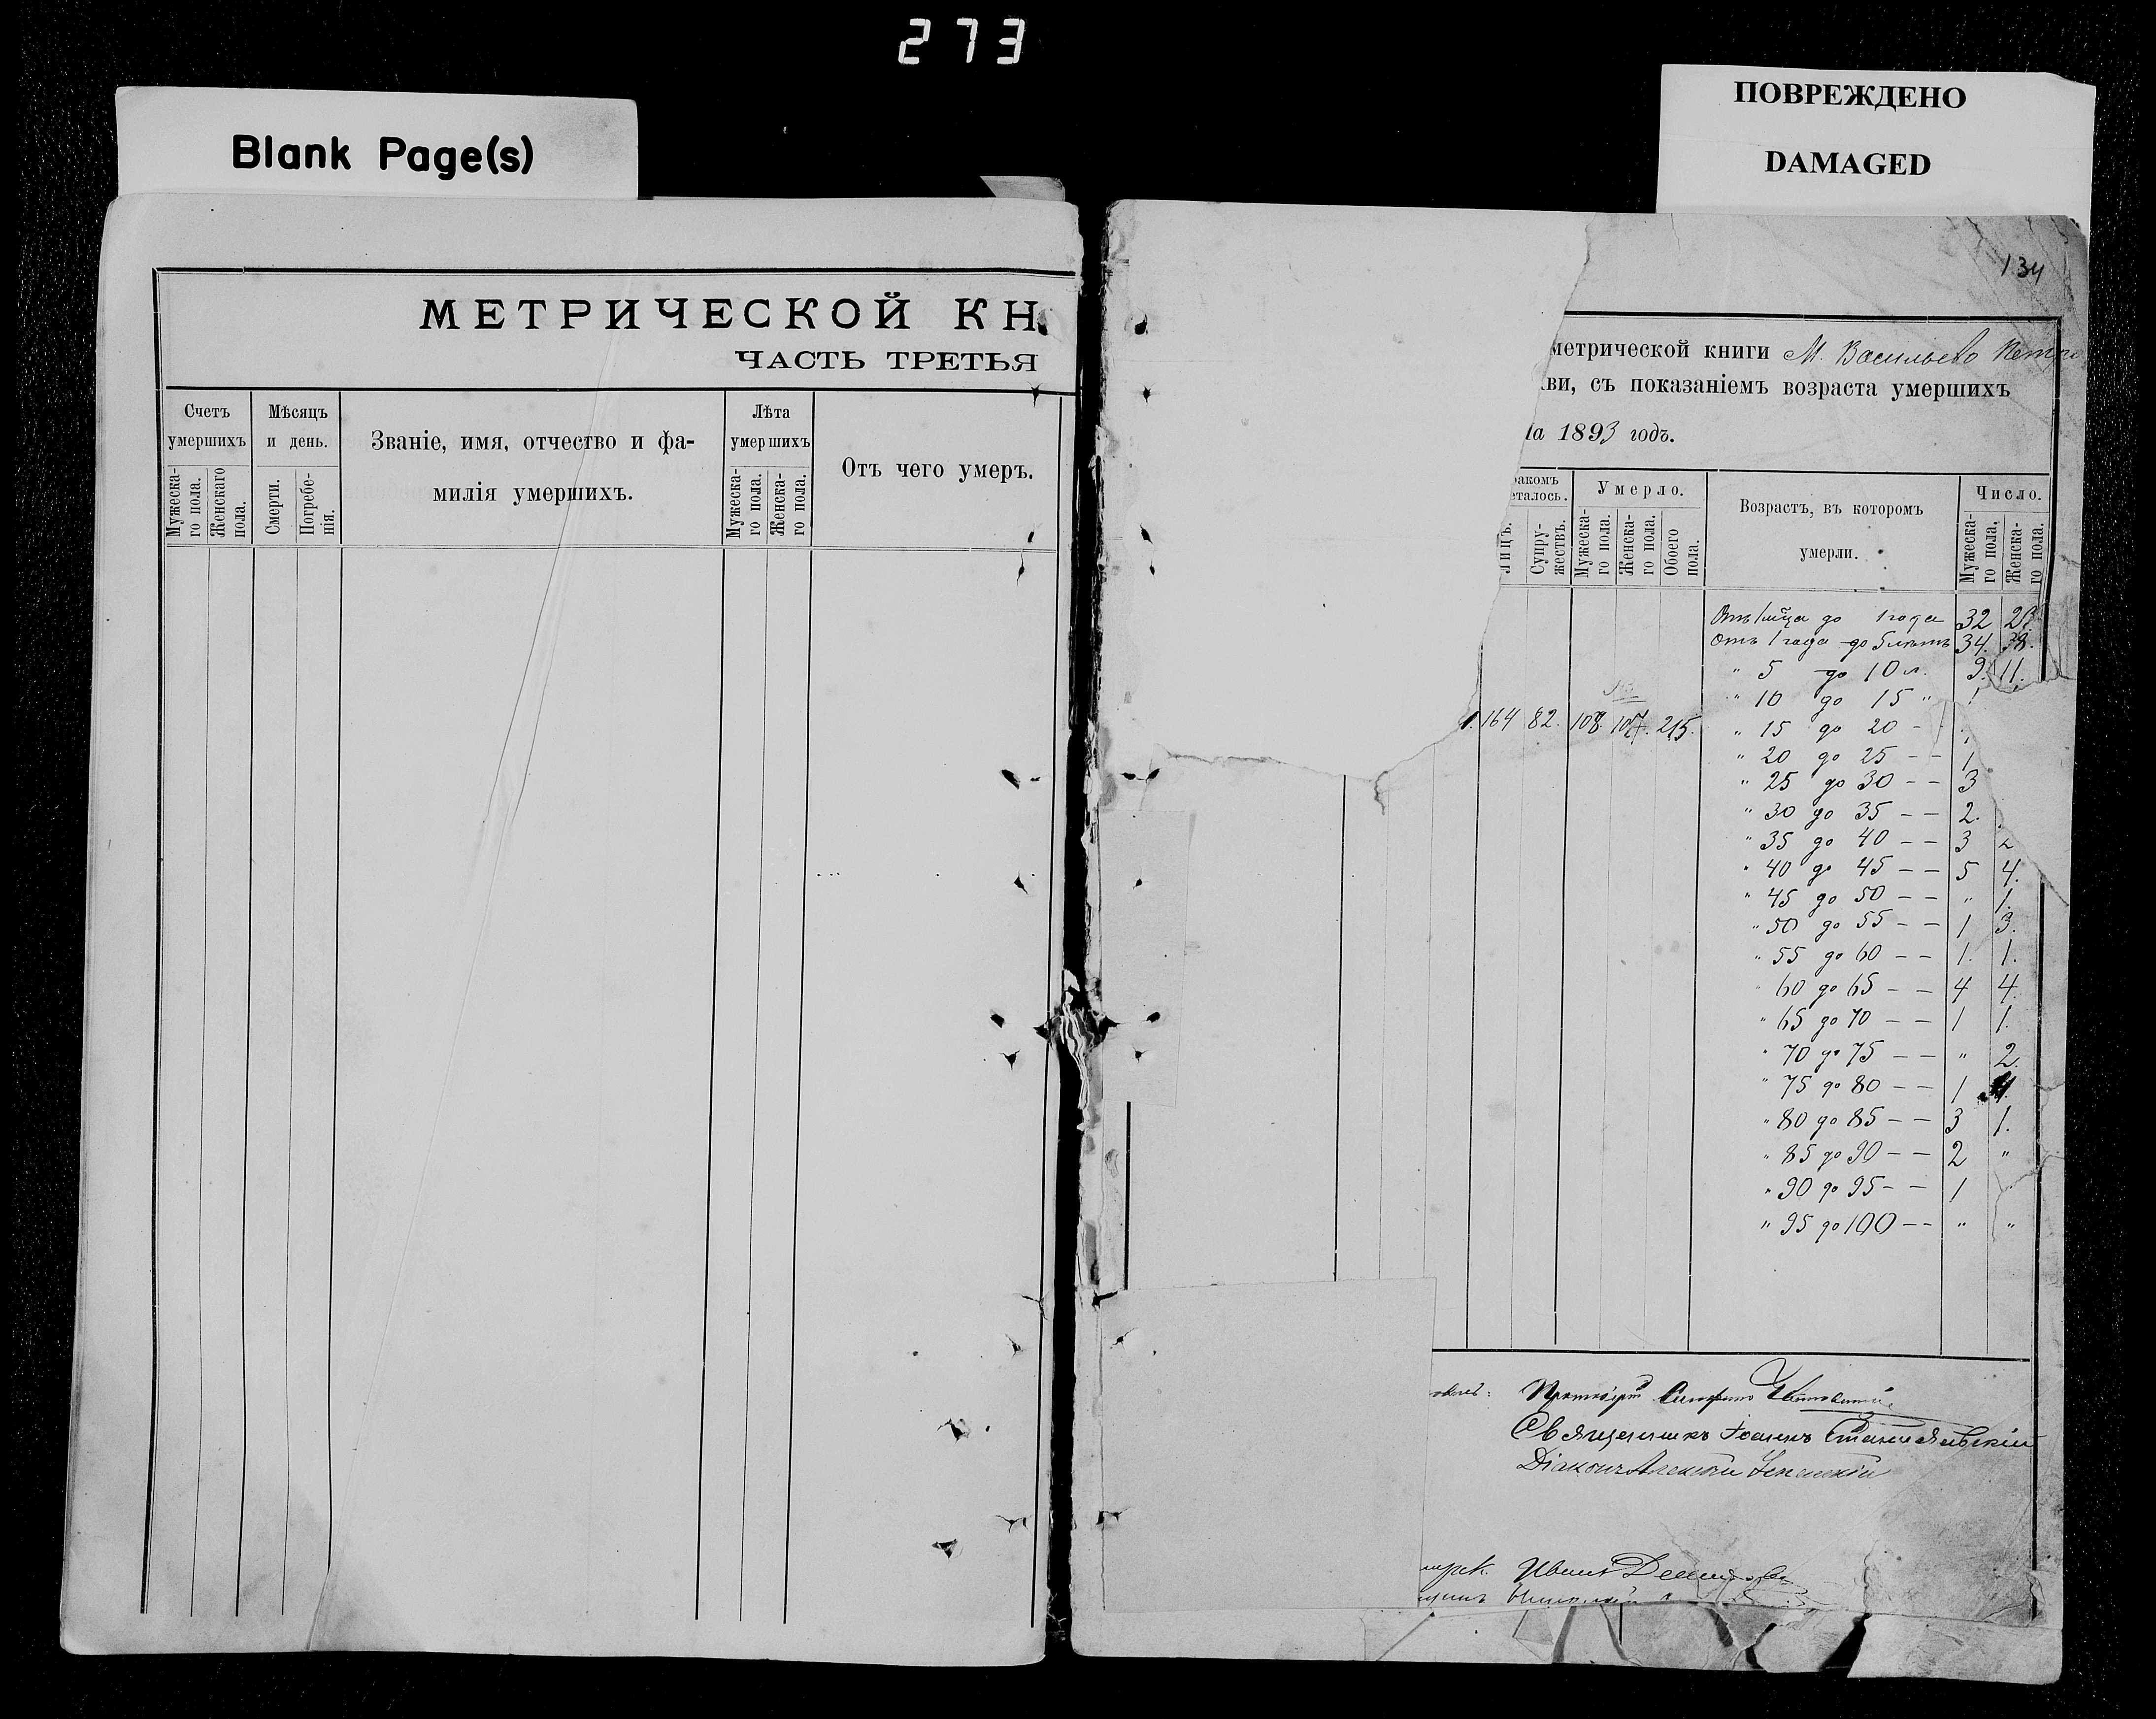 273
Blank Page(s)
ПОВРЕЖДЕНО
DAMAGED
МЕТРИЧЕСКОЙ КН
ЧАСТЬ ТРЕТЬЯ
Счетъ умершихъ
Мужеска-го пола.
Женскаго пола.
Мѣсяцъ и день.
Смерти.
Погребе-нія.
Званіе, имя, отчество и фа-
милія умершихъ.
Лѣта умершихъ
Мужеска-го пола.
Женска-го пола.
Отъ чего умеръ.
134
метрической книги М. Васильево
ви, съ показаніемъ возраста умершихъ
на 1893 годъ.
бракомъ
еталось.
Лицъ.
Супру-жествъ.
Умерло.
Мужеска-го пола.
Женска-го пола.
Обоего пола.
Возрастъ, въ которомъ
умерли.
Число.
Мужеска-го пола.
Женска-го пола.
164 82. 108. 107. 215.
Отъ 1 мѣца до 1 года 32
Отъ 1 года до 5 лѣтъ 34. 38.
" 5 до 10 л. 9. 11.
" 10 до 15 " 1
" 15 до 20 -
" 20 до 25 - - 1
" 25 до 30 - - 3
" 30 до 35 - - 2.
" 35 до 40 - - 3 2
" 40 до 45 - - 5 4.
" 45 до 50 - - " 1.
" 50 до 55 - - 1 3.
" 55 до 60 - - 1. 1.
" 60 до 65 - - 4 4.
" 65 до 70 - - 1 1.
" 70 до 75 - - " 2.
" 75 до 80 - - 1
" 80 до 85 - - 3 1.
" 85 до 90 - - 2 "
" 90 до 95 - - 1
" 95 до 100 - - " "
Священникъ Іоаннъ
Діаконъ Алексѣй
Иванъ